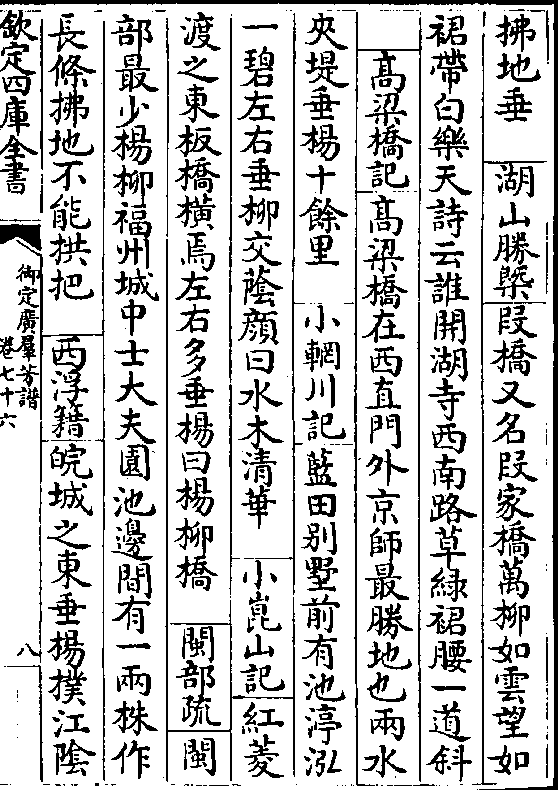 拂地垂　湖山勝槩　叚橋又名叚家橋萬柳如雲望如
裙帶白樂天詩云誰開湖寺西南路草綠裙腰一道斜
髙梁橋記　髙梁橋在西直門外京師最勝地也兩水
夾堤垂楊十餘里　小輞川記　藍田别墅前有池渟泓
一碧左右垂柳交蔭顔曰水木清華　小崑山記　紅菱
渡之東板橋横焉左右多垂楊曰楊柳橋　閩部疏　閩
部最少楊柳福州城中士大夫園池邊間有一兩株作
長條拂地不能拱把　西浮籍　皖城之東垂楊撲江陰
欽定四庫全書　御定廣羣芳譜　卷七十六　八